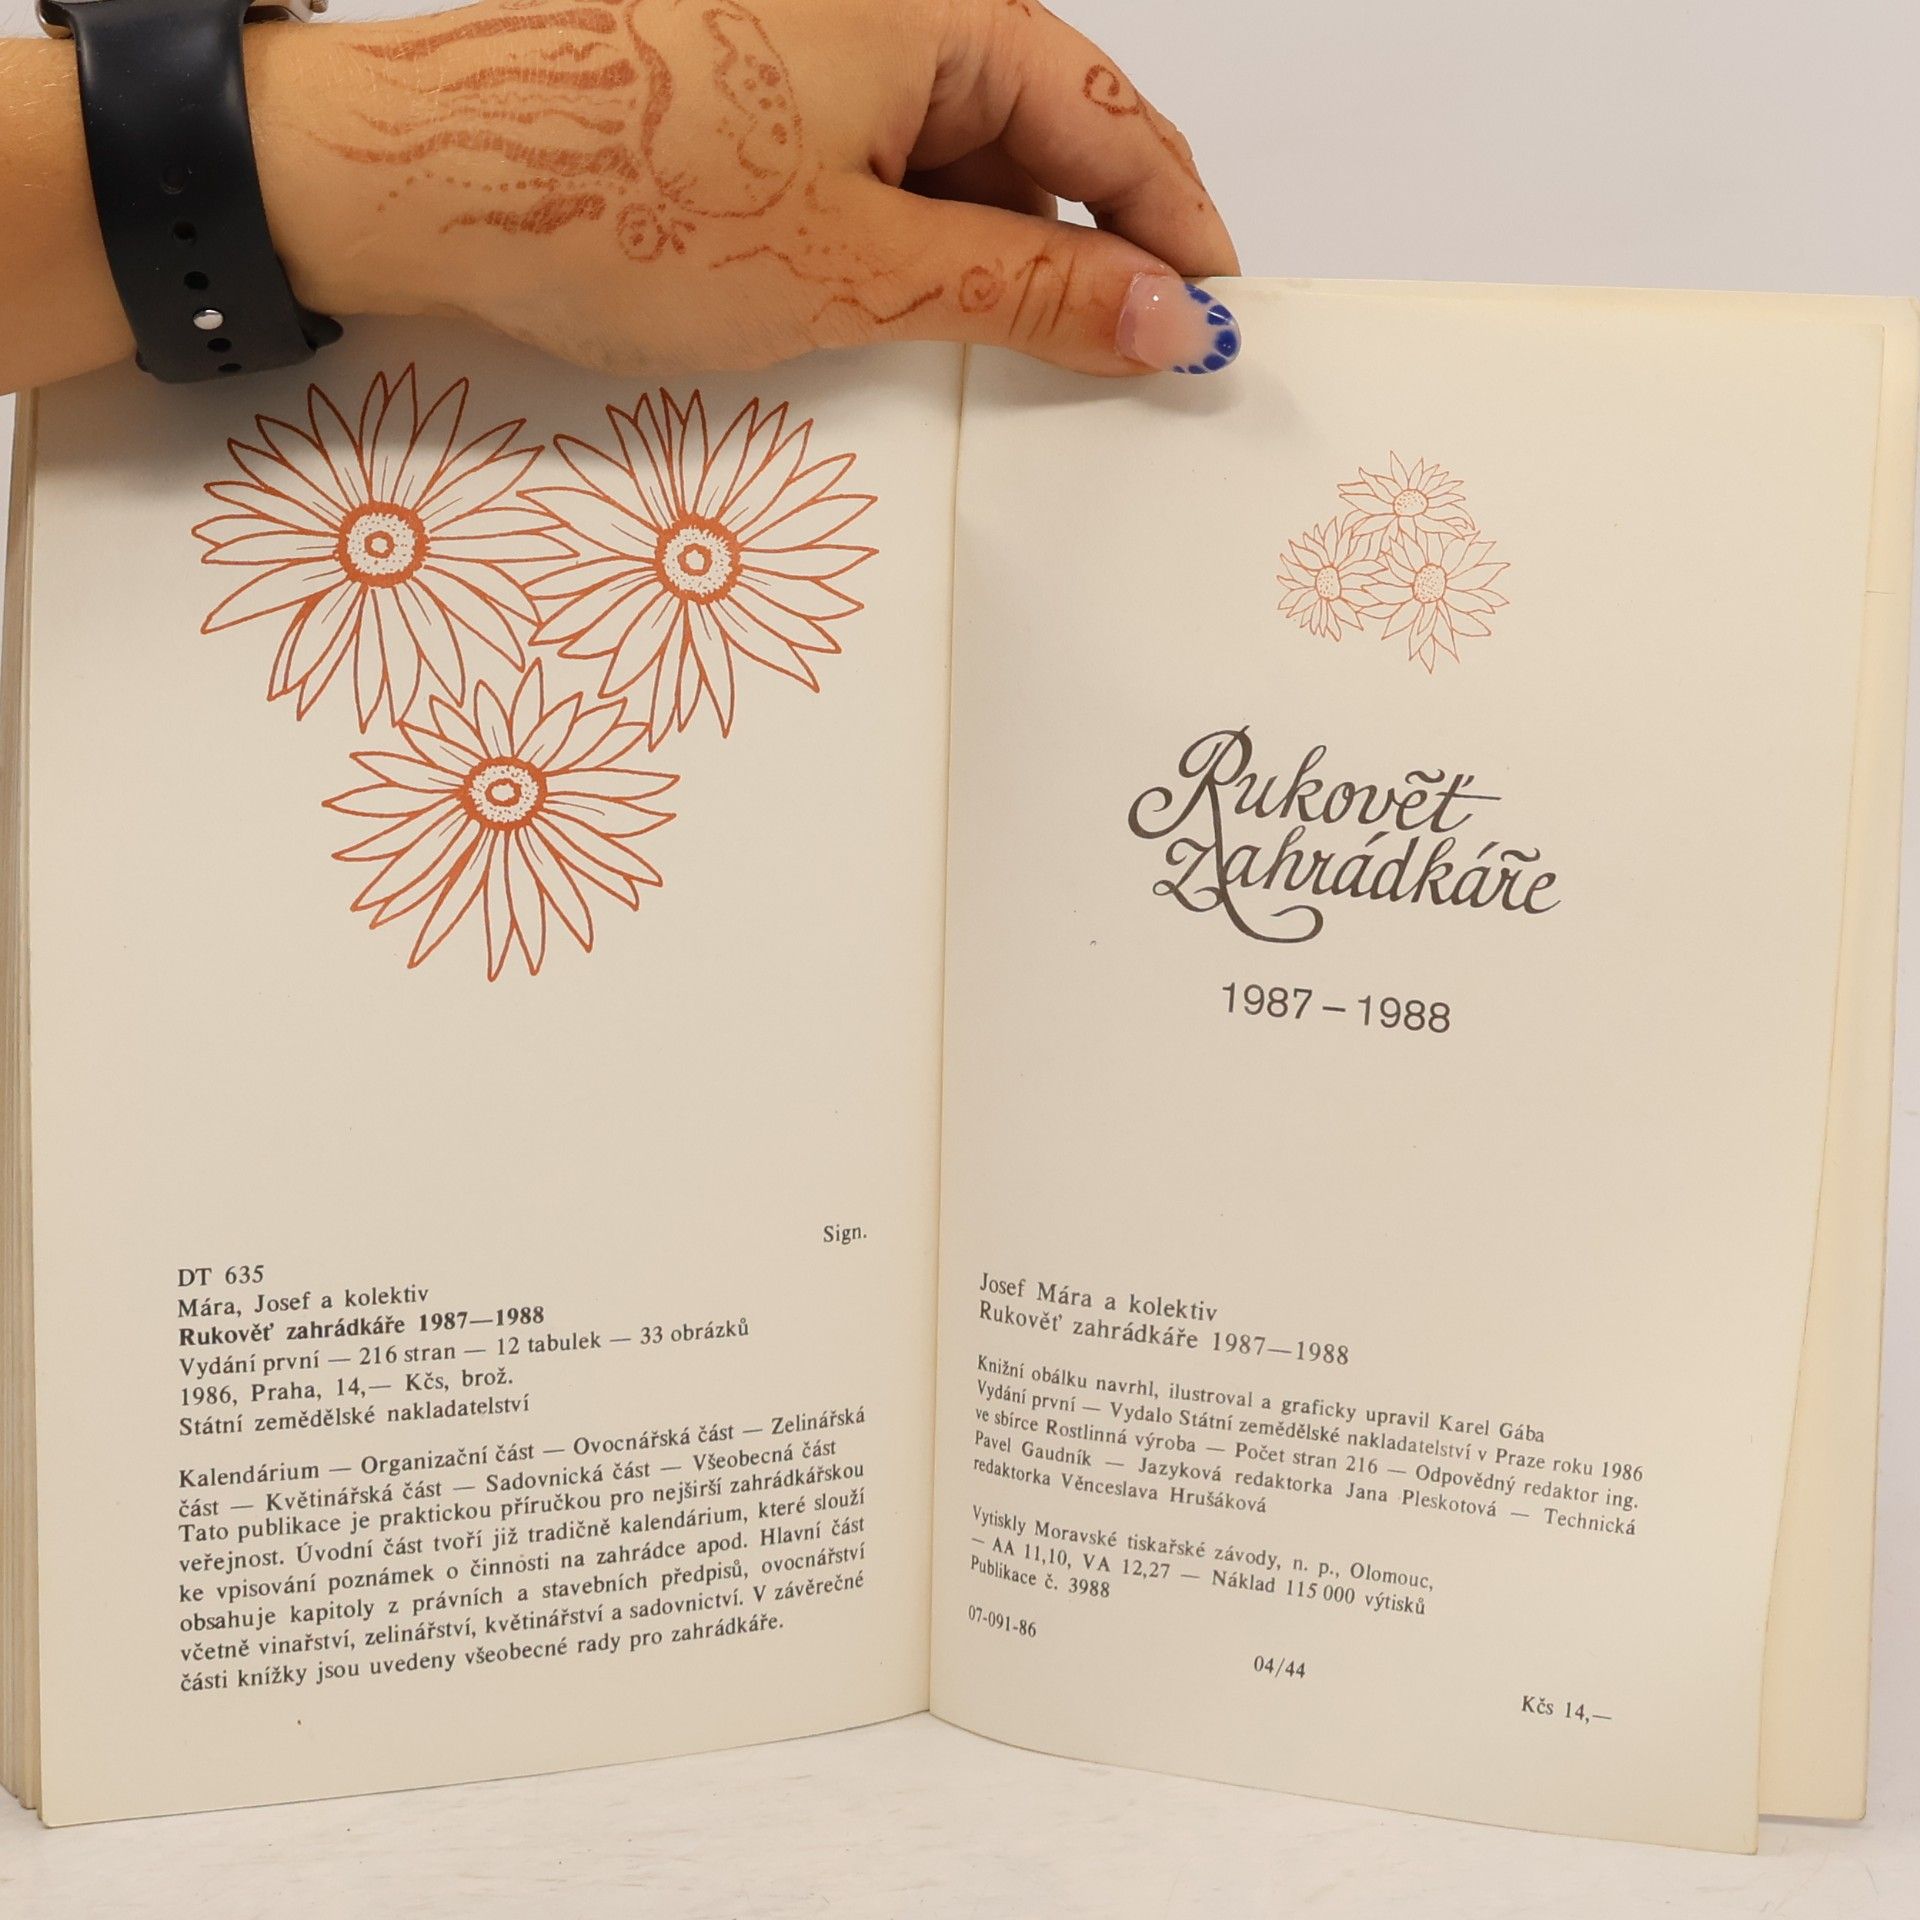 Sign.
DT 635
Mára, Josef a kolektiv
Rukověť zahrádkáře 1987—1988
Vydání první — 216 stran — 12 tabulek — 33 obrázků
1986, Praha, 14,— Kčs, brož.
Státní zemědělské nakladatelství
Kalendárium — Organizační část — Ovocnářská část — Zelinářská
část — Květinářská část — Sadovnická část — Všeobecná část
Tato publikace je praktickou příručkou pro nejširší zahrádkářskou
veřejnost. Úvodní část tvoří již tradičně kalendárium, které slouží
ke vpisování poznámek o činnosti na zahrádce apod. Hlavní část
obsahuje kapitoly z právních a stavebních předpisů, ovocnářství
včetně vinařství, zelinářství, květinářství a sadovnictví. V závěrečné
části knížky jsou uvedeny všeobecné rady pro zahrádkáře.
Rukověť
zahrádkáře
1987 – 1988
Josef Mára a kolektiv
Rukověť zahrádkáře 1987—1988
Knižní obálku navrhl, ilustroval a graficky upravil Karel Gába
Vydání první — Vydalo Státní zemědělské nakladatelství v Praze roku 1986
ve sbírce Rostlinná výroba — Počet stran 216 — Odpovědný redaktor ing.
Pavel Gaudník — Jazyková redaktorka Jana Pleskotová — Technická
redaktorka Věnceslava Hrušáková
Vytiskly Moravské tiskařské závody, n. p., Olomouc,
— AA 11,10, VA 12,27 — Náklad 115 000 výtisků
Publikace č. 3988
07-091-86
04/44
Kčs 14,—